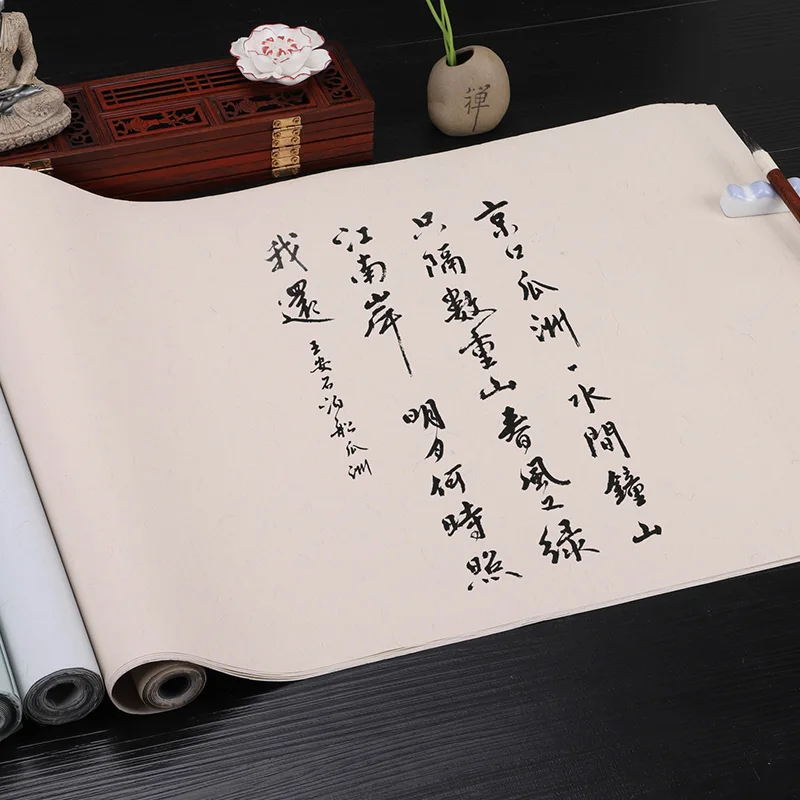 京口瓜洲一水間鐘山
只隔数重山春風又緑
江南岸明月何時照
我還
王安石泊船瓜洲
禅